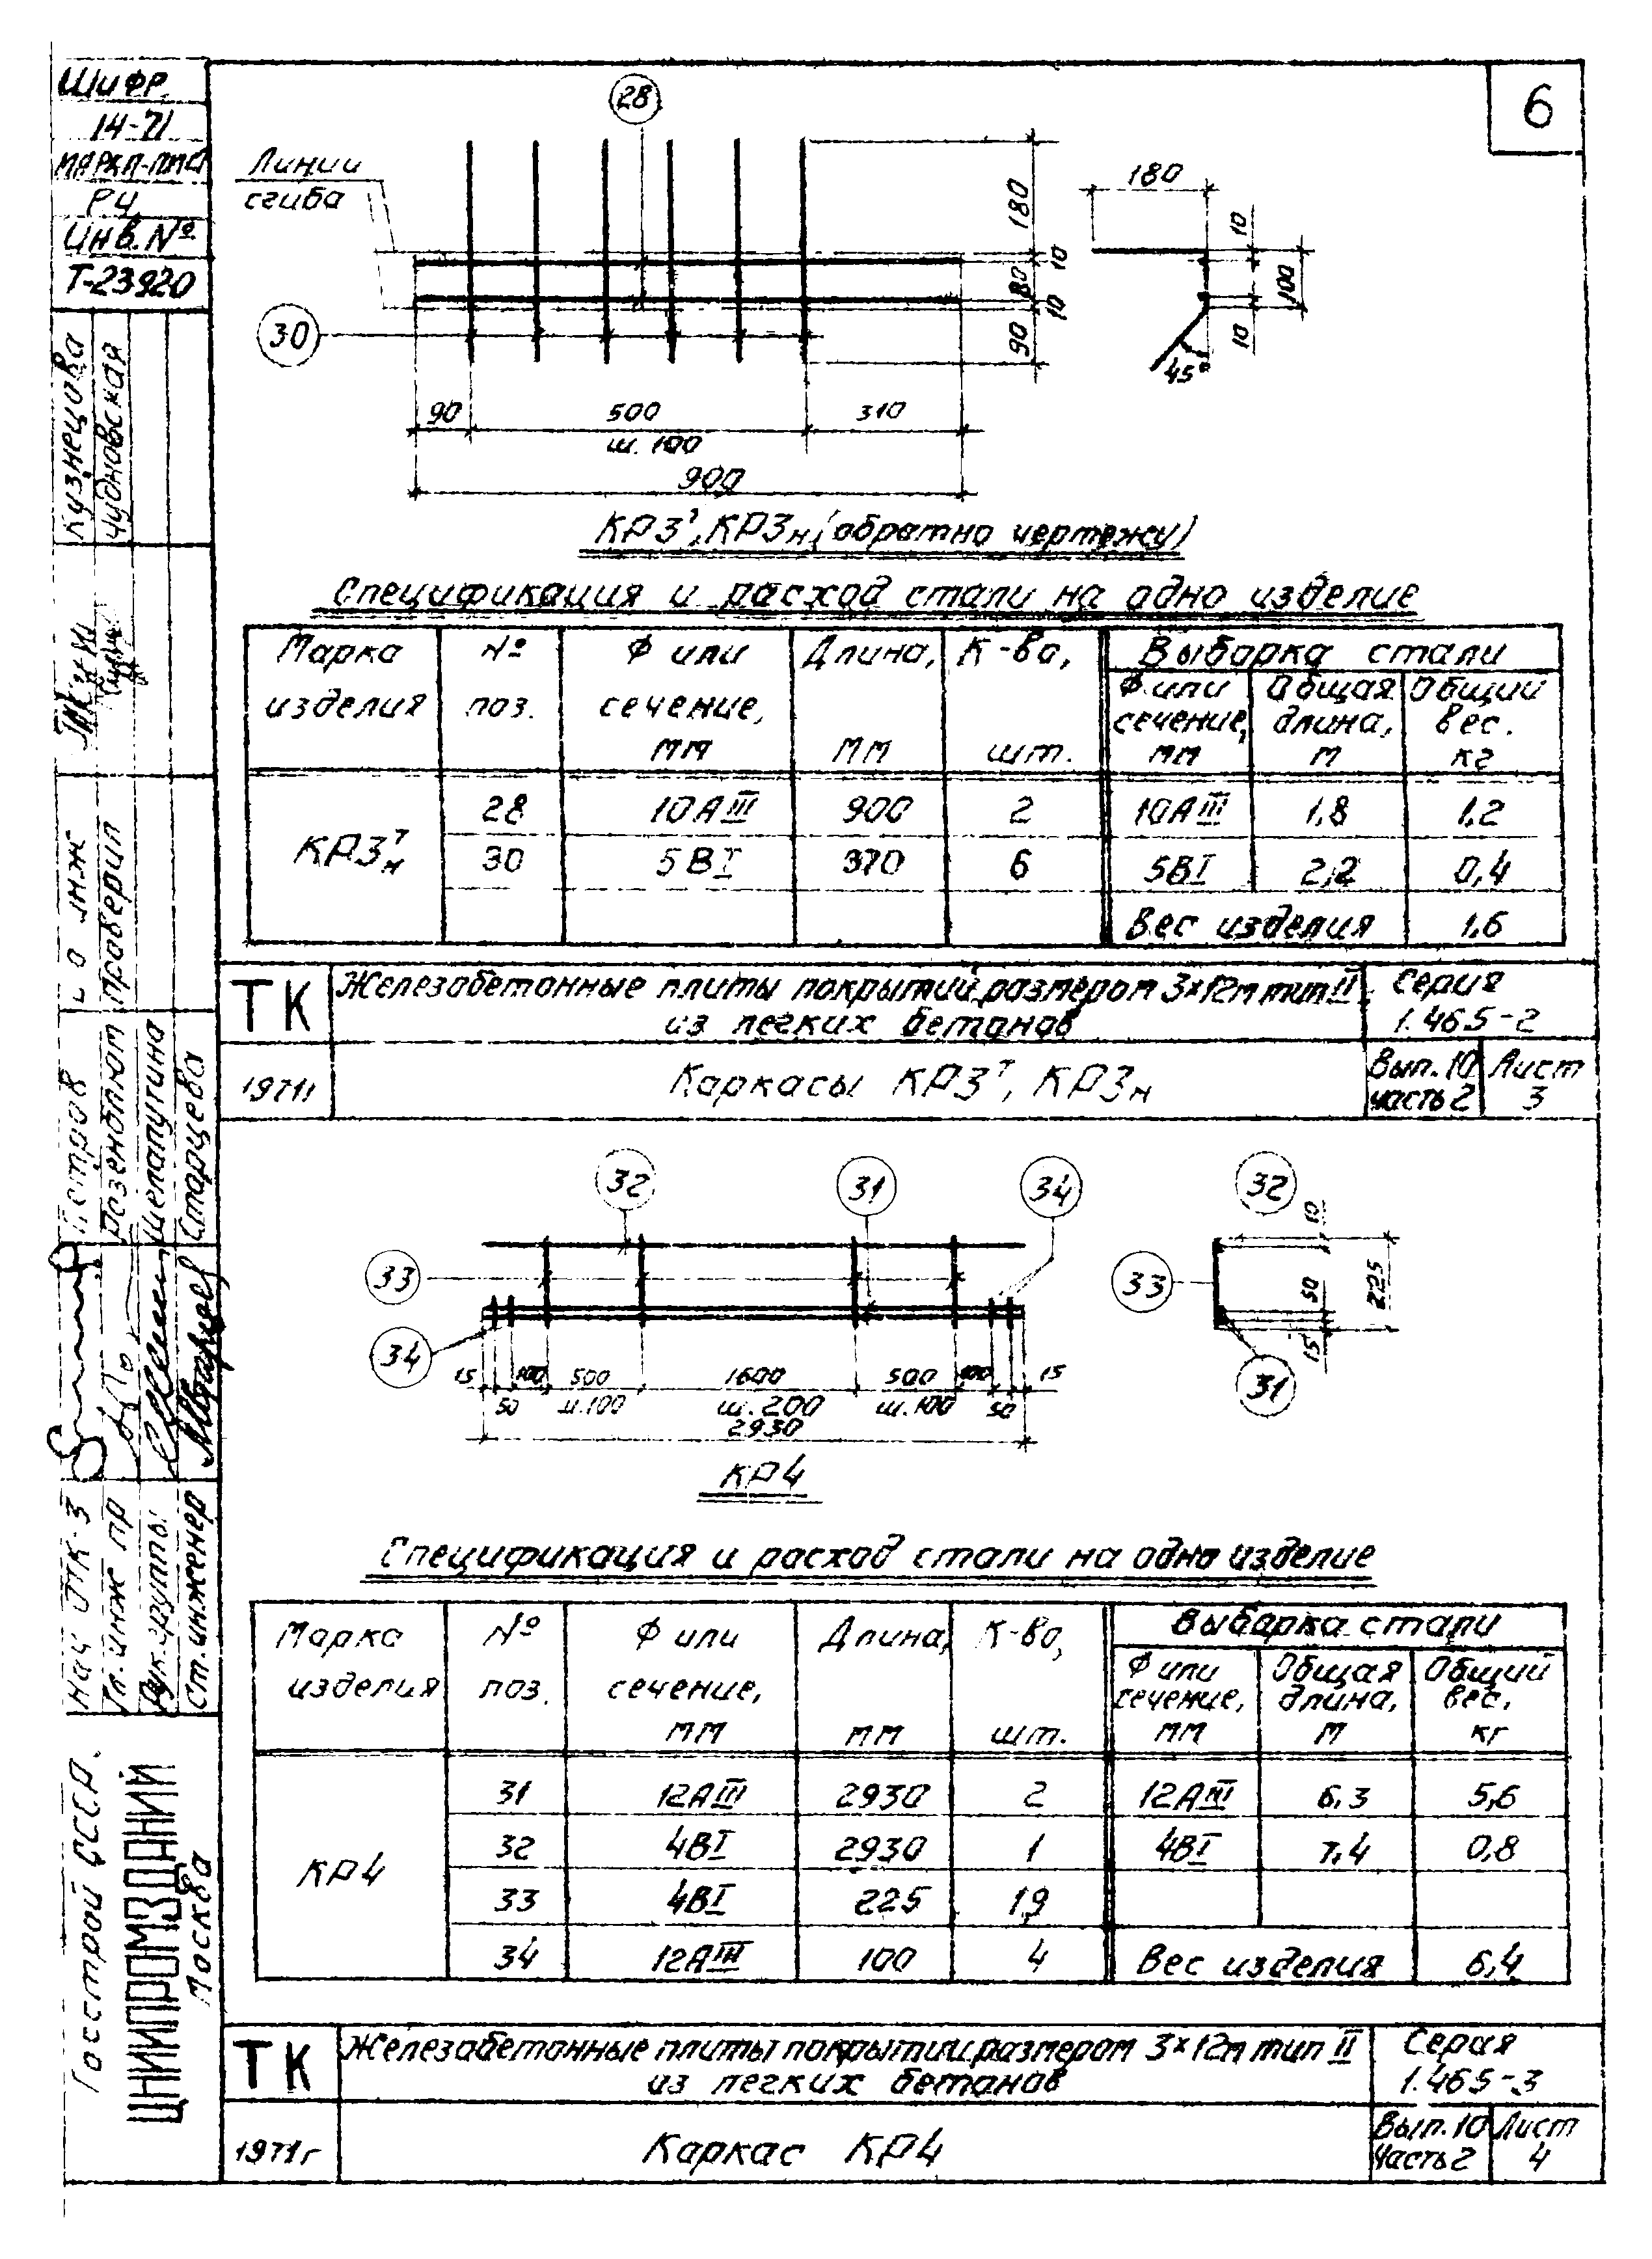 6
Шифр
14-71
Марка-лист
РЧ
Инв. №
Т-23920
Кузнецова
Чудновская
проверил
Петров
Розенблюм
Шелапутина
Старцева
Нач ОТК-3
Гл. инж пр
Рук. группы
Ст. инженер
Госстрой СССР.
ЦНИИПРОМЗДАНИЙ
Москва
28
Линии
сгиба
30
180
10
80
10
90
90
500
ш. 100
310
900
180
10
100
10
45°
КР3т, КР3н (обратно чертежу)
Спецификация и расход стали на одно изделие
Марка изделия
№ поз.
Ф или сечение, мм
Длина, мм
К-во, шт.
Выборка стали
Ф или сечение, мм
Общая длина, м
Общий вес. кг
КР3т н
28 10АIII 900 2 10АIII 1,8 1,2
30 5ВI 370 6 5ВI 2,2 0,4
Вес изделия 1,6
ТК
Железобетонные плиты покрытий размером 3×12м тип II
из легких бетонов
Серия
1.465-2
1971г
Каркасы КР3т, КР3н
Вып. 10
часть 2
Лист
3
32
31
34
33
34
15
50
100
500
ш.100
1600
ш.200
500
ш.100
100
50
15
2930
32
33
31
10
50
15
225
КР4
Спецификация и расход стали на одно изделие
Марка изделия
№ поз.
Ф или сечение, мм
Длина, мм
К-во, шт.
Выборка стали
Ф или сечение, мм
Общая длина, м
Общий вес, кг
КР4
31 12АIII 2930 2 12АIII 6,3 5,6
32 4ВI 2930 1 4ВI 7,4 0,8
33 4ВI 225 19
34 12АIII 100 4
Вес изделия 6,4
ТК
Железобетонные плиты покрытий размером 3×12м тип II
из легких бетонов
Серия
1.465-3
1971г
Каркас КР4
Вып. 10
Часть 2
Лист
4